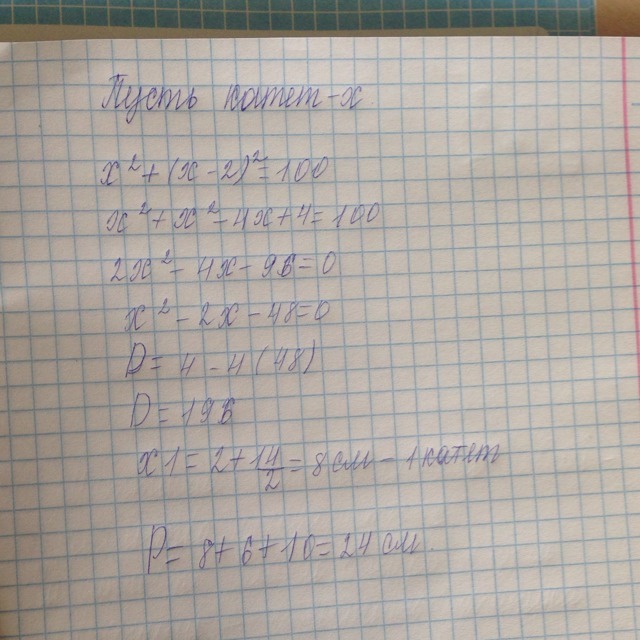 Пусть катет - x.
x² + (x - 2)² = 100
x² + x² - 4x + 4 = 100
2x² - 4x - 96 = 0
x² - 2x - 48 = 0
D = 4 - 4(48)
D = 196
x1 = 2 + 14/2 = 8 см - 1 катет
P = 8 + 6 + 10 = 24 см.